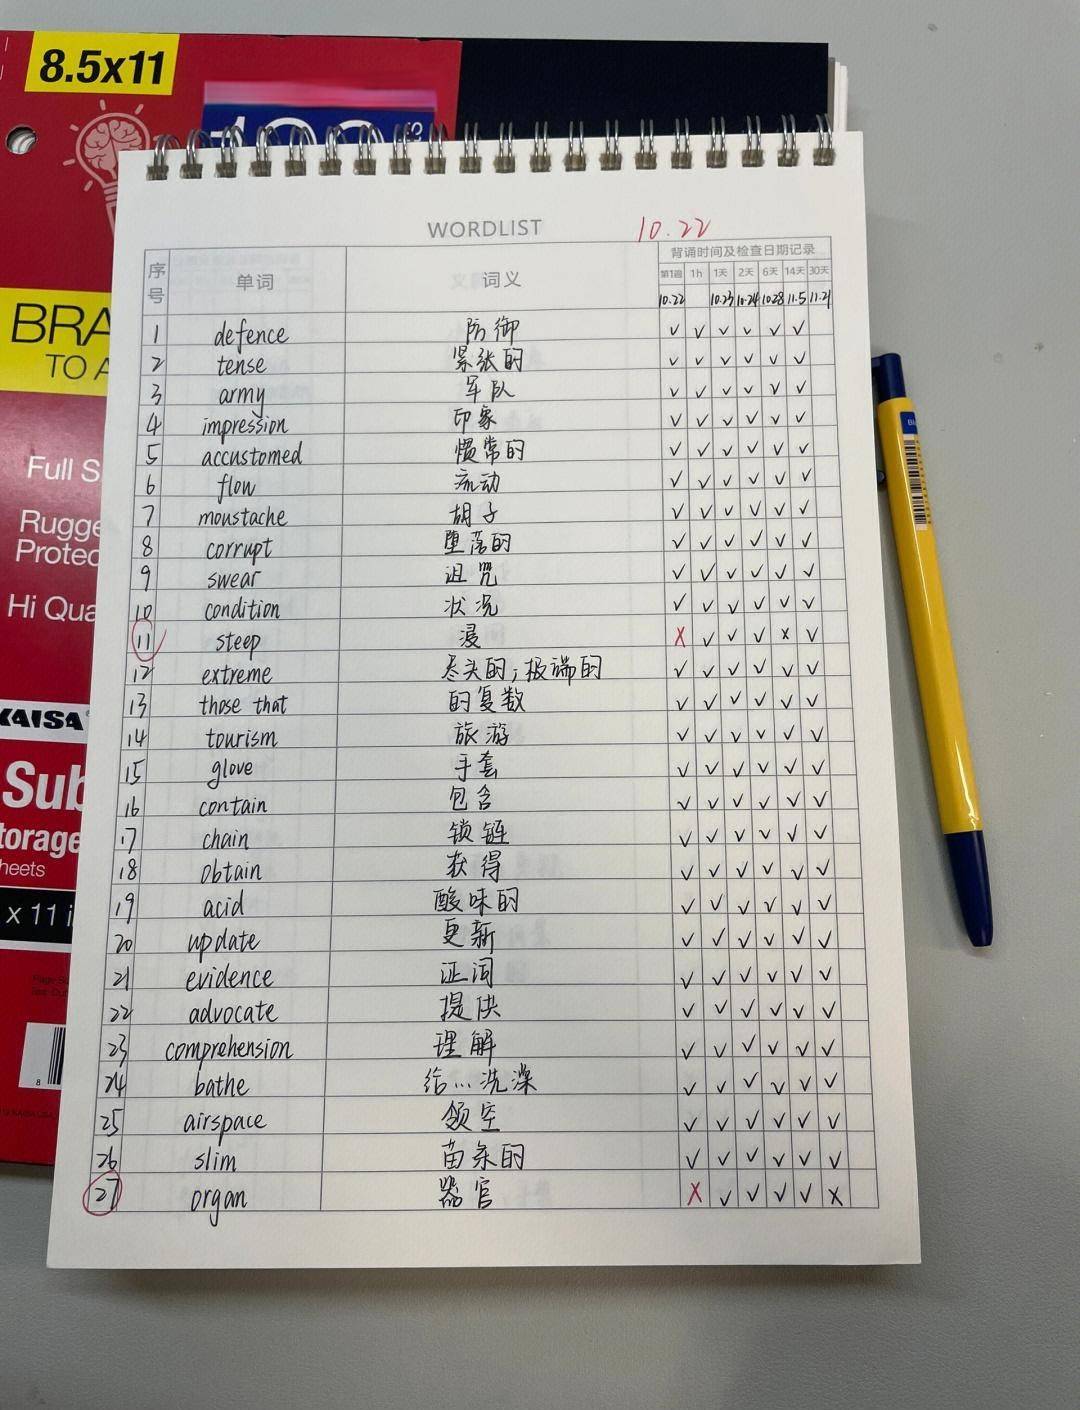 8.5x11
100
BRA
TO A
Full S
Rugge
Protec
Hi Qua
KAISA®
Sub
torage
heets
x 11 i
WORDLIST
10.22
序号 单词 词义 背诵时间及检查日期记录
第1遍 1h 1天 2天 6天 14天 30天
10.22 10.23 10.24 10.28 11.5 11.21
1 defence 防御 ✓ ✓ ✓ ✓ ✓ ✓
2 tense 紧张的 ✓ ✓ ✓ ✓ ✓ ✓
3 army 军队 ✓ ✓ ✓ ✓ ✓ ✓
4 impression 印象 ✓ ✓ ✓ ✓ ✓ ✓
5 accustomed 惯常的 ✓ ✓ ✓ ✓ ✓ ✓
6 flow 流动 ✓ ✓ ✓ ✓ ✓ ✓
7 moustache 胡子 ✓ ✓ ✓ ✓ ✓ ✓
8 corrupt 堕落的 ✓ ✓ ✓ ✓ ✓ ✓
9 swear 诅咒 ✓ ✓ ✓ ✓ ✓ ✓
10 condition 状况 ✓ ✓ ✓ ✓ ✓ ✓
11 steep 浸 x ✓ ✓ ✓ x ✓
12 extreme 尽头的；极端的 ✓ ✓ ✓ ✓ ✓ ✓
13 those that 的复数 ✓ ✓ ✓ ✓ ✓ ✓
14 tourism 旅游 ✓ ✓ ✓ ✓ ✓ ✓
15 glove 手套 ✓ ✓ ✓ ✓ ✓ ✓
16 contain 包含 ✓ ✓ ✓ ✓ ✓ ✓
17 chain 锁链 ✓ ✓ ✓ ✓ ✓ ✓
18 obtain 获得 ✓ ✓ ✓ ✓ ✓ ✓
19 acid 酸味的 ✓ ✓ ✓ ✓ ✓ ✓
20 update 更新 ✓ ✓ ✓ ✓ ✓ ✓
21 evidence 证词 ✓ ✓ ✓ ✓ ✓ ✓
22 advocate 提供 ✓ ✓ ✓ ✓ ✓ ✓
23 comprehension 理解 ✓ ✓ ✓ ✓ ✓ ✓
24 bathe 给…洗澡 ✓ ✓ ✓ ✓ ✓ ✓
25 airspace 领空 ✓ ✓ ✓ ✓ ✓ ✓
26 slim 苗条的 ✓ ✓ ✓ ✓ ✓ ✓
27 organ 器官 x ✓ ✓ ✓ ✓ x